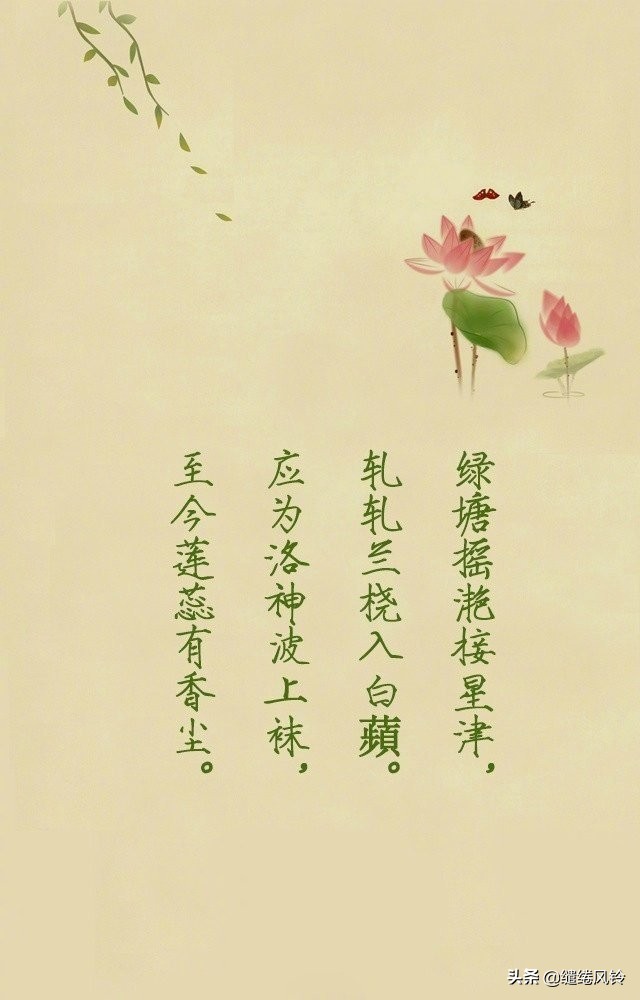 绿塘摇滟接星津，
轧轧兰桡入白蘋。
应为洛神波上袜，
至今莲蕊有香尘。
头条 @缱绻风铃